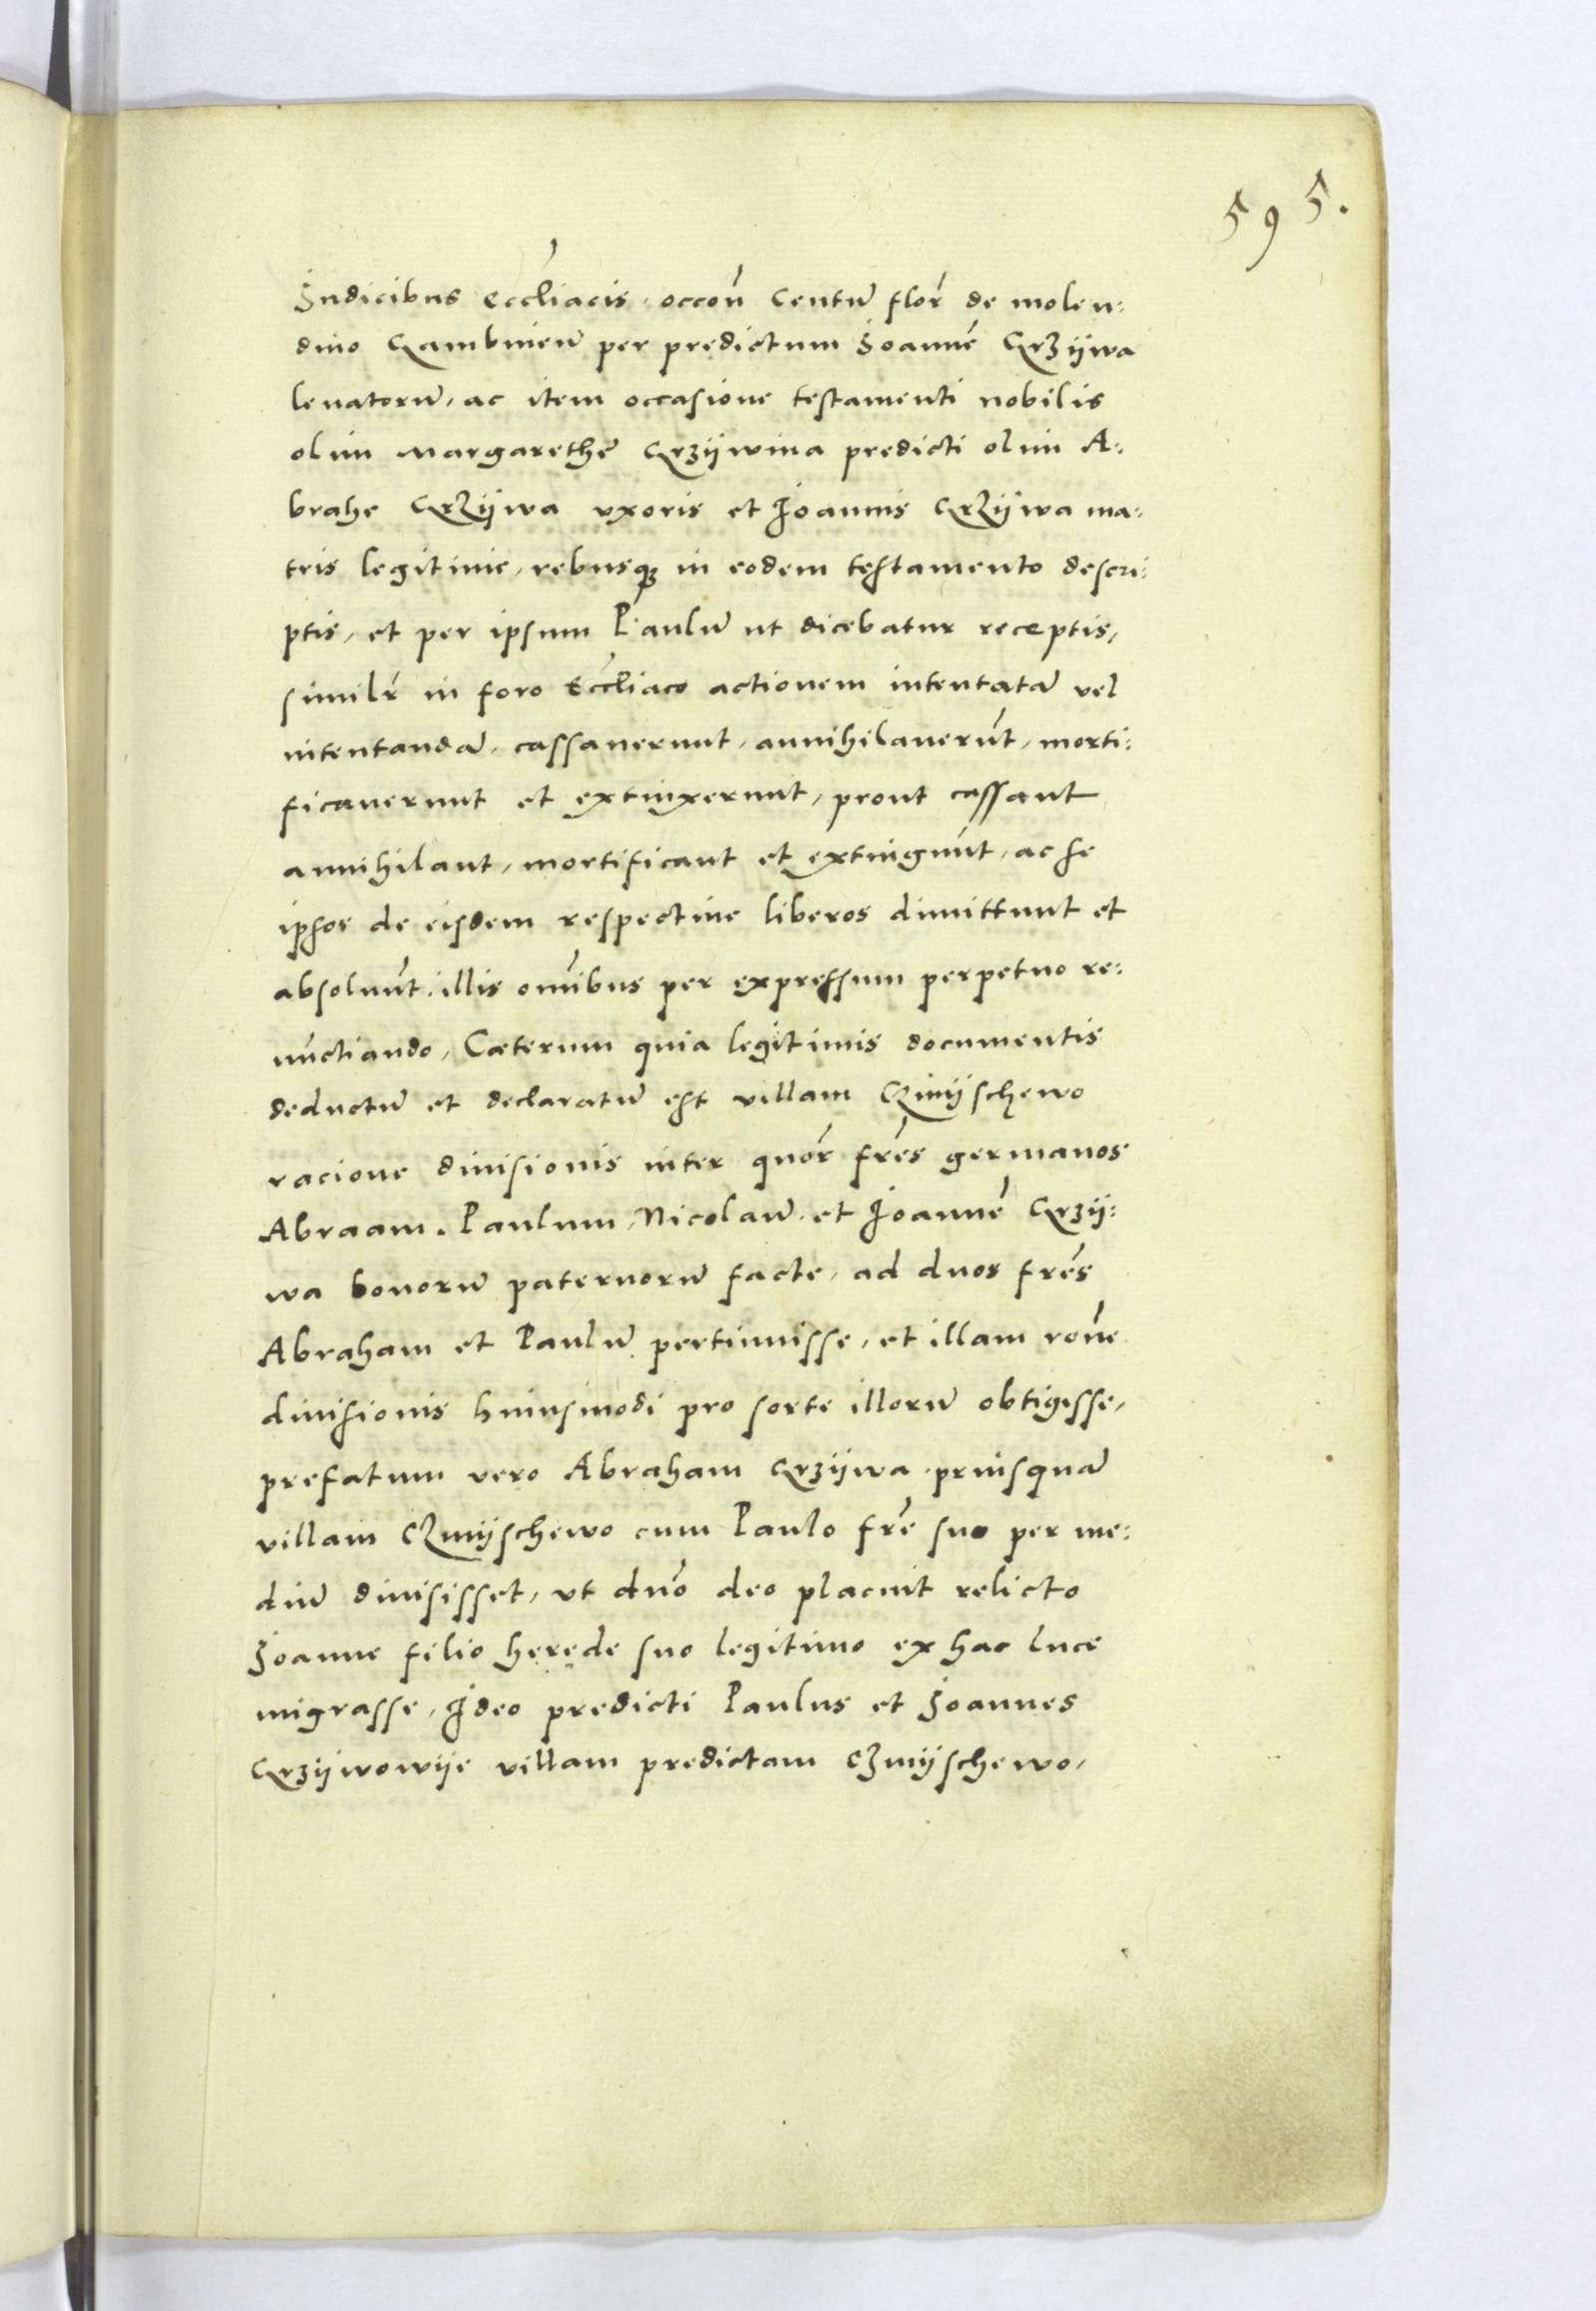 595.
Judicibus ecc̃liacis, occon̄ centū flor̃ de molen:
dino Gambinēn per predictum Joannē Grzÿwa
leuatorū, ac item occasione testamenti nobilis
olim Margarethe Grzÿwina predicti olim A:
brahe GrZÿwa vxoris et Joannis GrZÿwa ma:
tris legitime, rebusq3 in eodem testamento descri:
ptis, et per ipsum Paulū ut dicebatur receptis,
similr̃ in foro Ecc̃liaco actionem intentatā vel
intentandā, cassauerunt, annihilauerūt, morti:
ficauerunt et extinxerunt, prout cassant
annihilant, mortificant et extingunt, ac se
ipsos de eisdem respectiue liberos dimittunt et
absoluūt, illis om̃ibus per expressum perpetuo re:
nūctiando, Cæterum quia legitimis documentis
deductū et declaratū est villam CZmÿschewo
racione diuisionis inter quor̃ fr̃es germanos
Abraam, Paulum, Nicolaū, et Joannē Grzÿ:
wa bonorū paternorū facte, ad duos fr̃es
Abraham et Paulū pertinuisse, et illam rōne
diuisionis huiusmodi pro sorte illorū obtigisse,
prefatum vero Abraham Grzÿwa, priusquā
villam CZmÿschewo cum Paulo fr̃e suo per me:
diū diuisisset, vt dn̄o deo placuit relicto
Joanne filio herede suo legitimo ex hac luce
migrasse, Ideo predicti Paulus et Joannes
Grzÿwowÿe villam predictam CZmÿschewo,